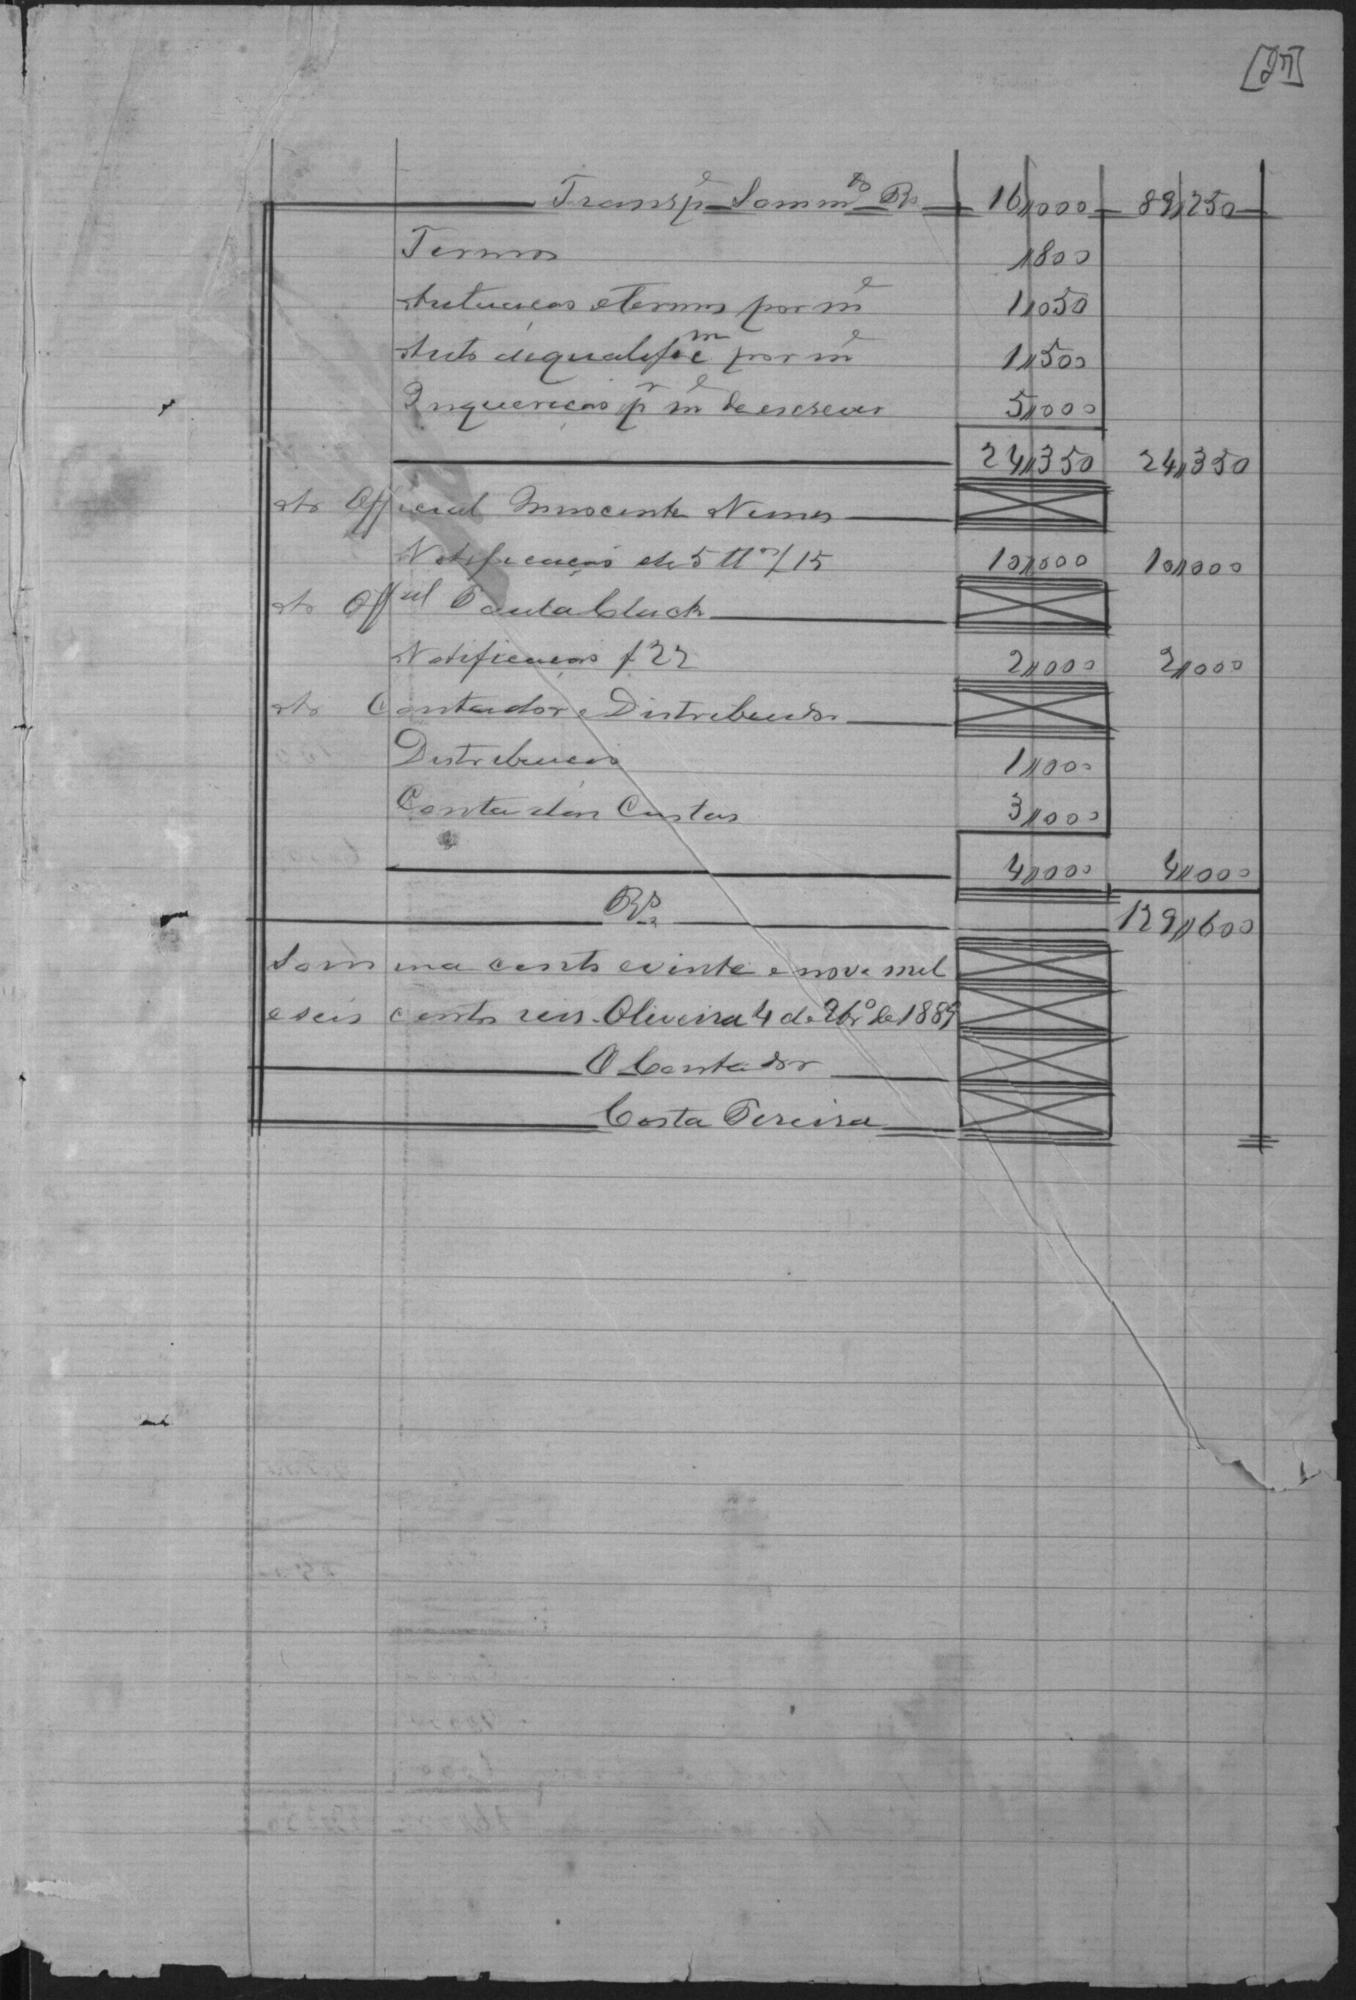 [27]
Transp.e Somm.as Rs 16,,000 89,,250
Termos 1,,800
Autuacão e termos por m.e 1,,050
Auto de qualific.m por m.e 1,,500
Inquericão p.r m.e de escrever 5,,000
24,,350 24,,350
Ao Official Innocente Nunes
Notificacão de 5 tt.as f 15 10,,000 10,,000
Ao Off.ial Paula
Notificacão f 22 2,,000 2,,000
Ao Contador e Distribuidor
Distribuicão 1,,000
Conta das Custas 3,,000
4,,000 4,,000
Rs 129,,600
Somma cento e vinte e nove mil
e seis centos reis. Oliveira 4 de de 1889
O Contador
Costa Pereira